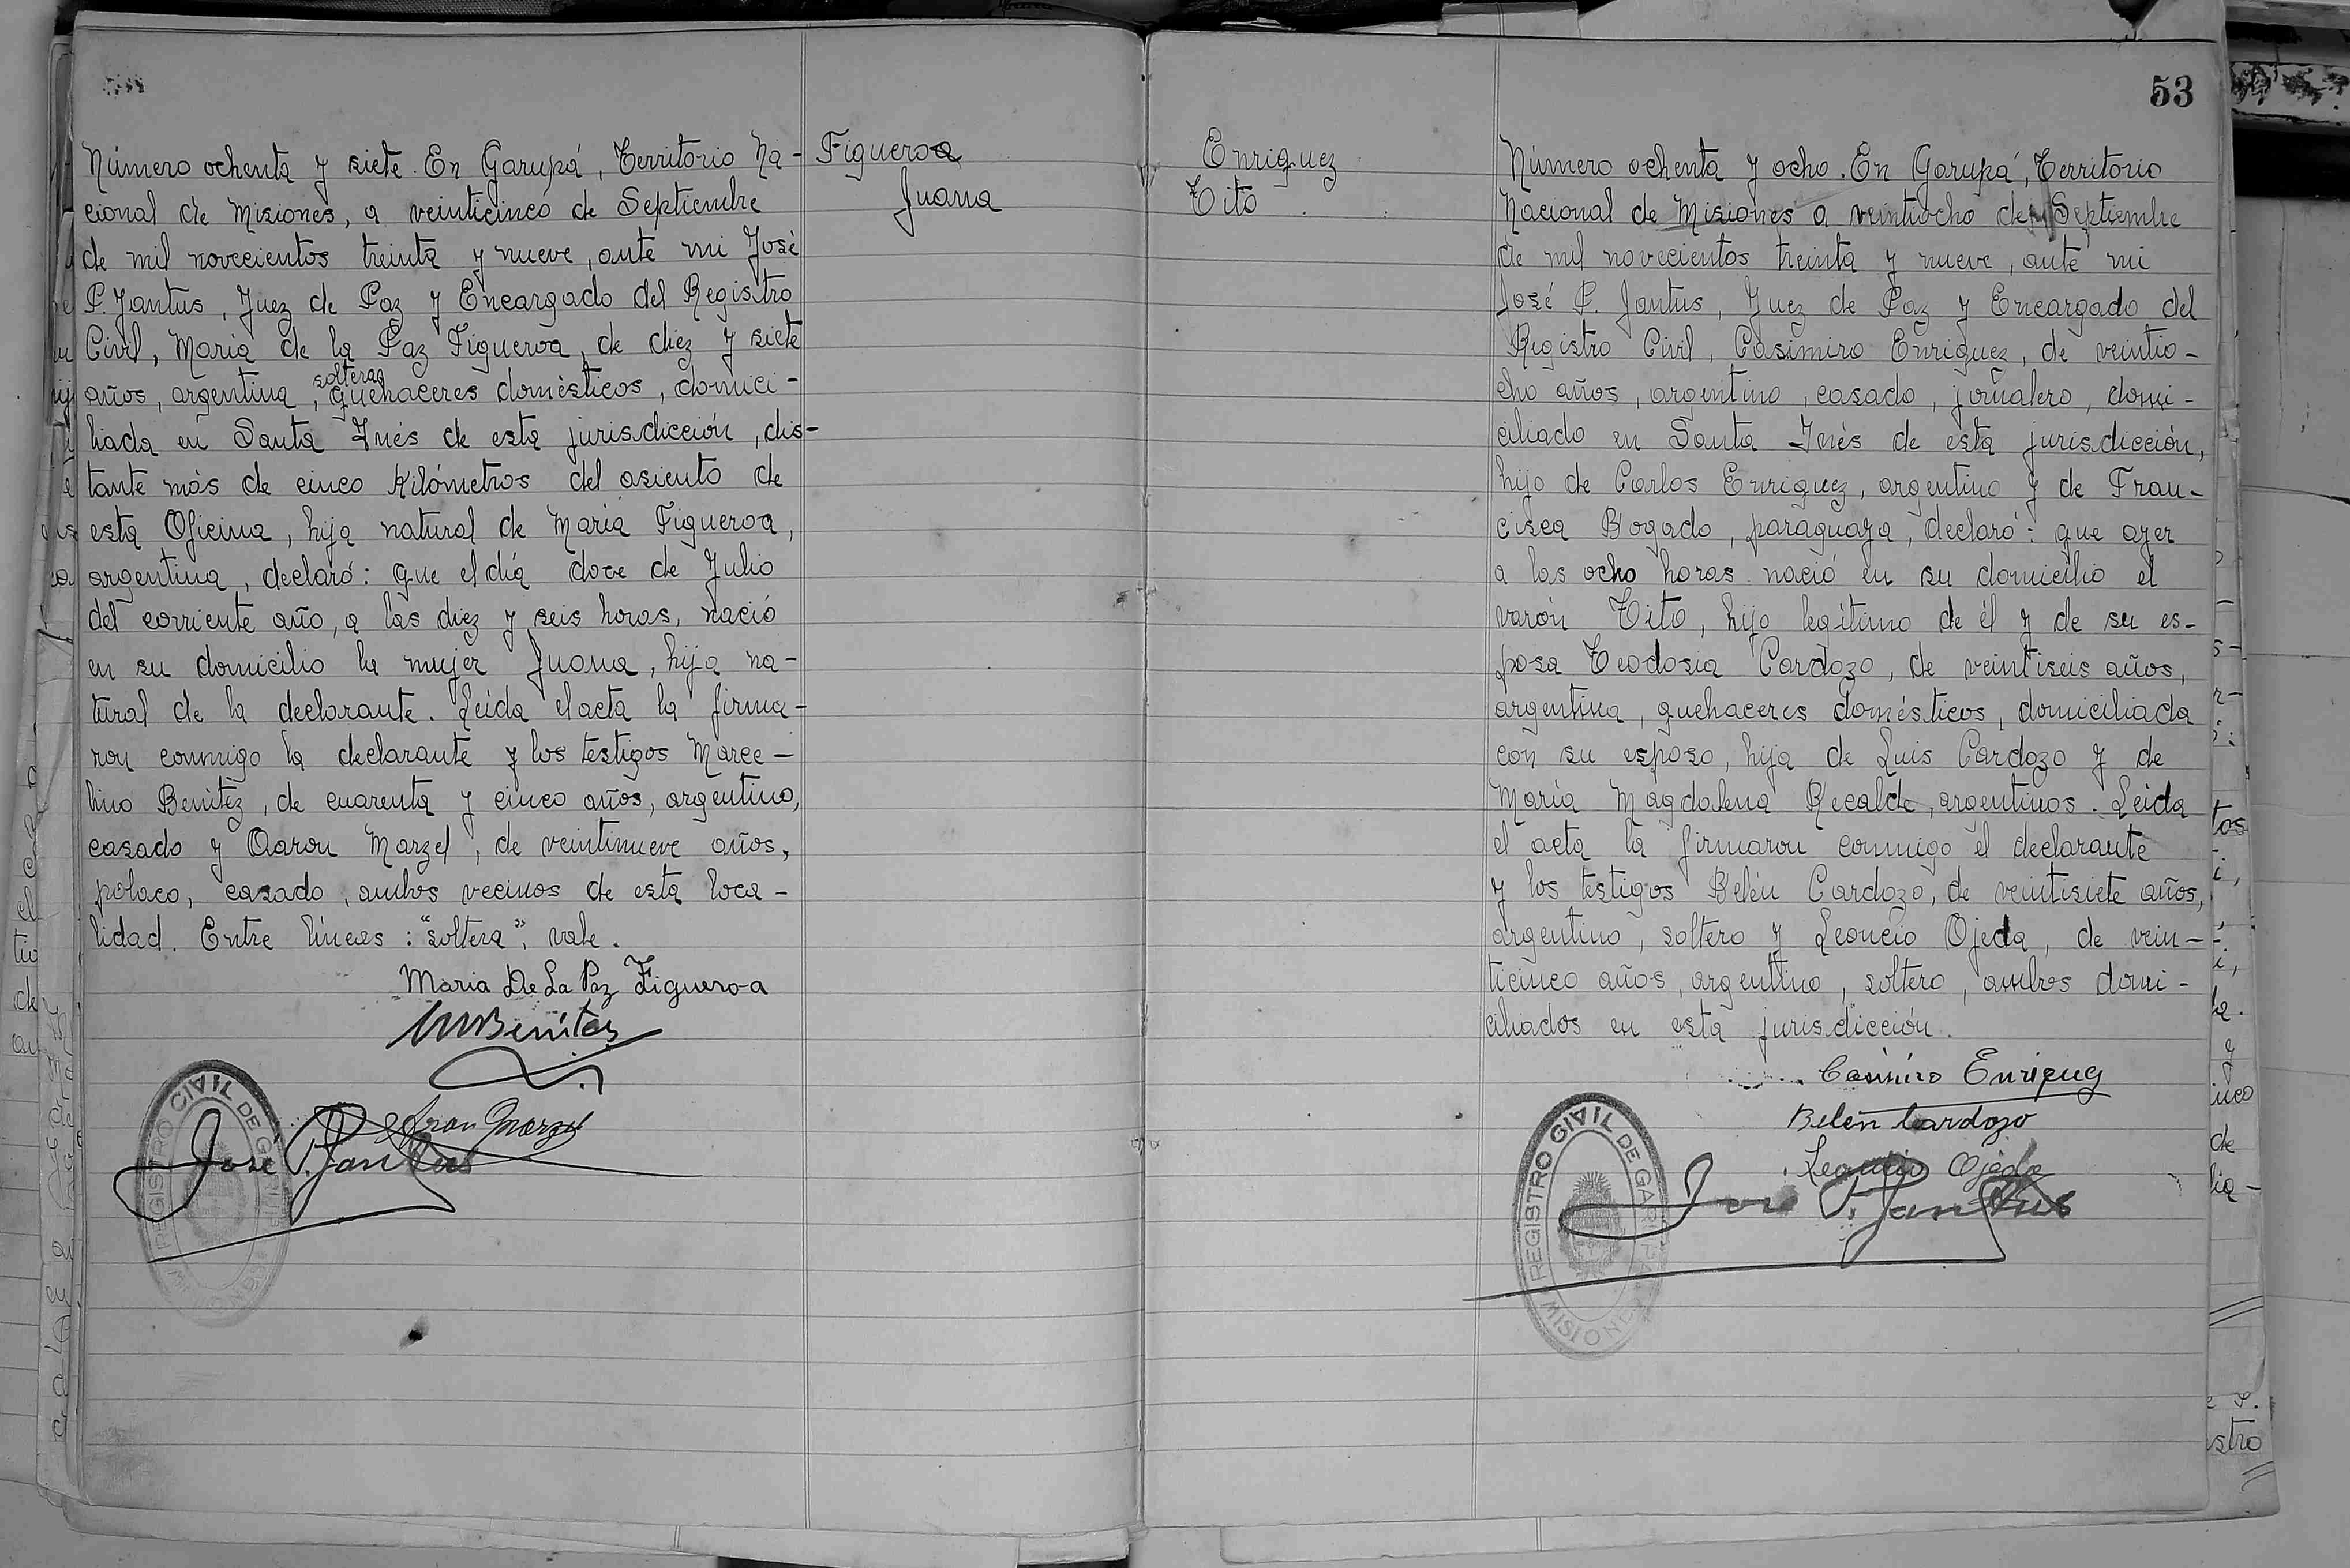 Número ochenta y siete. En Garupá, Territorio Na-
cional de Misiones, a veinticinco de Septiembre
de mil novecientos treinta y nueve, ante mi José
P. Jantus, Juez de Paz y Encargado del Registro
Civil, Maria de la Paz Figueroa, de diez y siete
soltera
años, argentina, quehaceres domésticos, domici-
liada en Santa Inés de esta jurisdicción, dis-
tante más de cinco Kilómetros del asiento de
esta Oficina, hija natural de Maria Figueroa,
argentina, declaró: que el día doce de Julio
del corriente año, a las diez y seis horas, nació
en su domicilio la mujer Juana, hija na-
tural de la declarante. Leida el acta la firma-
ron conmigo la declarante y los testigos Marce-
lino Benitez, de cuarenta y cinco años, argentino,
casado y Aaron Marzel, de veintinueve años,
polaco, casado, ambos vecinos de esta loca-
lidad. Entre líneas: "soltera", vale.
Maria De La Paz Figueroa
M Benitez
Aron Marzel
José P. Jantus
REGISTRO CIVIL DE GARUPÁ
MISIONES
Figueroa
Juana
53
Enriquez
Tito
Número ochenta y ocho. En Garupá, Territorio
Nacional de Misiones a veintiocho de Septiembre
de mil novecientos treinta y nueve, ante mi
José P. Jantus, Juez de Paz y Encargado del
Registro Civil, Casimiro Enriquez, de veintio-
cho años, argentino, casado, jornalero, domi-
ciliado en Santa Inés de esta jurisdicción,
hijo de Carlos Enriquez, argentino y de Fran-
cisca Bogado, paraguaya, declaró: que ayer
a las ocho horas nació en su domicilio el
varón Tito, hijo legítimo de él y de su es-
posa Teodosia Cardozo, de veintiseis años,
argentina, quehaceres domésticos, domiciliada
con su esposo, hija de Luis Cardozo y de
Maria Magdalena Recalde, argentinos. Leida
el acta la firmaron conmigo el declarante
y los testigos Belén Cardozo, de veintisiete años,
argentino, soltero y Leoncio Ojeda, de vein-
ticinco años, argentino, soltero, ambos domi-
ciliados en esta jurisdicción.
Casimiro Enriquez
Belén Cardozo
Leoncio Ojeda
José P. Jantus
REGISTRO CIVIL DE GARUPÁ
MISIONES